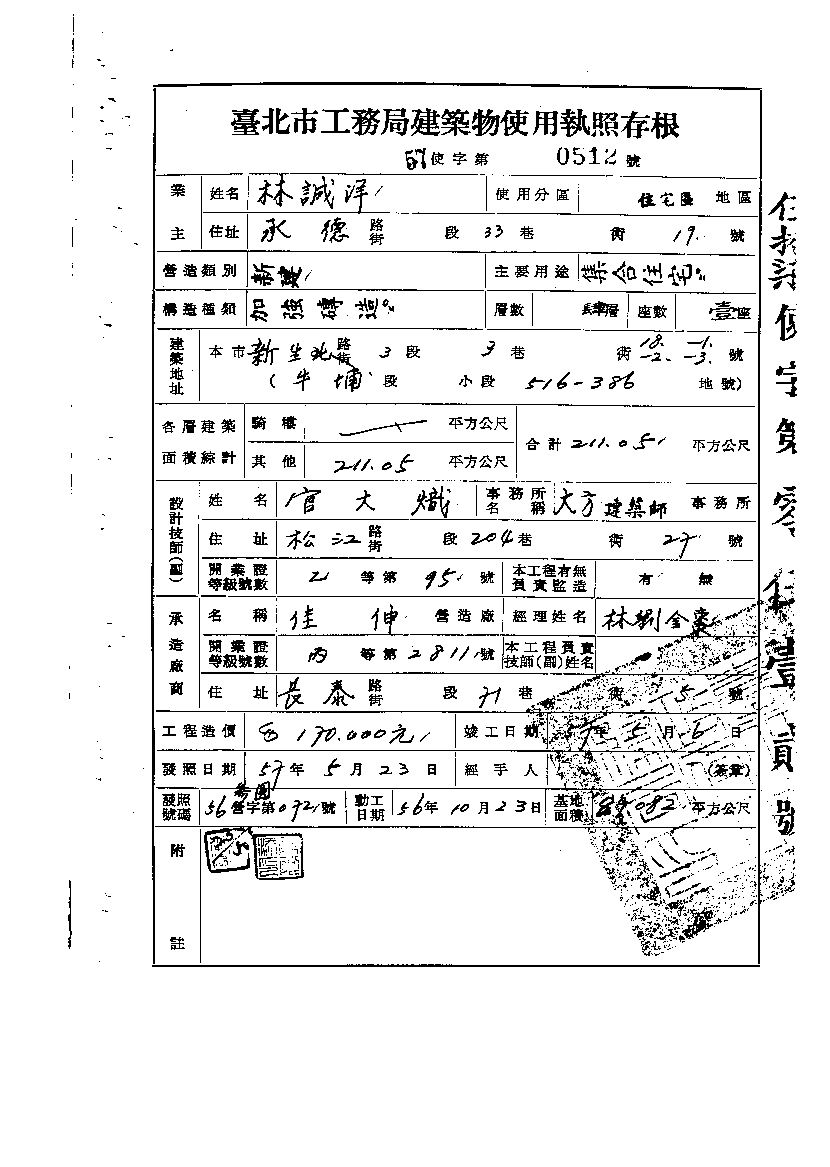 臺北市工務局建築物使用執照存根
57使字第 0512 號
業主 姓名 林誠洋 使用分區 住宅區 地區
住址 承德 路街 段 33 巷 衖 19 號
營造類別 新建 主要用途 集合住宅
構造種類 加強磚造 層數 肆層 座數 壹座
建築地址 本市 新生北 路街 3 段 3 巷 衖 18. -1. -2. -3. 號
(牛埔 段 小段 516-386 地號)
各層建築面積綜計 騎樓 平方公尺 合計 211.05 平方公尺
其他 211.05 平方公尺
設計技師(副) 姓名 官大熾 事務所名稱 大方建築師 事務所
住址 松江 路街 段 204 巷 衖 27 號
開業證等級號數 乙 等第 95 號 本工程有無負責監造 有 無
承造廠商 名稱 佳伸 營造廠 經理姓名 林劉金棗
開業證等級號數 丙 等第 2811 號 本工程負責技師(副)姓名
住址 長泰 路街 段 71 巷 衖 5 號
工程造價 170.000元 竣工日期 57年 5月 6日
發照日期 57年 5月 23日 經手人 (簽章)
發照號碼 56 營字第 0721 號 動工日期 56年 10月 23日 基地面積 082 平方公尺
附註
伍拾柒使字第零伍壹貳號